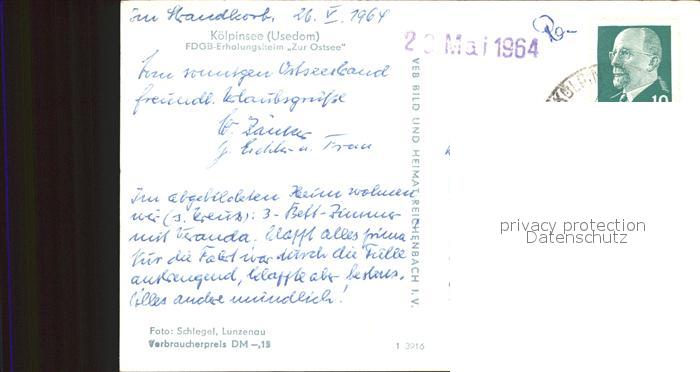 Im Strandkorb, 26. V. 1964
Kölpinsee (Usedom)
FDGB-Erholungsheim „Zur Ostsee"
Vom sonnigen Ostseestrand
freundl. Urlaubsgrüße
u. Frau
Im abgebildeten Heim wohnen
wir (s. Kreuz): 3-Bett-Zimmer
mit Veranda, klappt alles prima
Nur die Fahrt war durch die Fülle
anstrengend, klappte aber bestens.
Alles andere mündlich!
Foto: Schlegel, Lunzenau
Verbraucherpreis DM —,15
1 3916
VEB BILD UND HEIMAT REICHENBACH I. V.
Mai 1964
KÖLP
10
privacy protection
Datenschutz